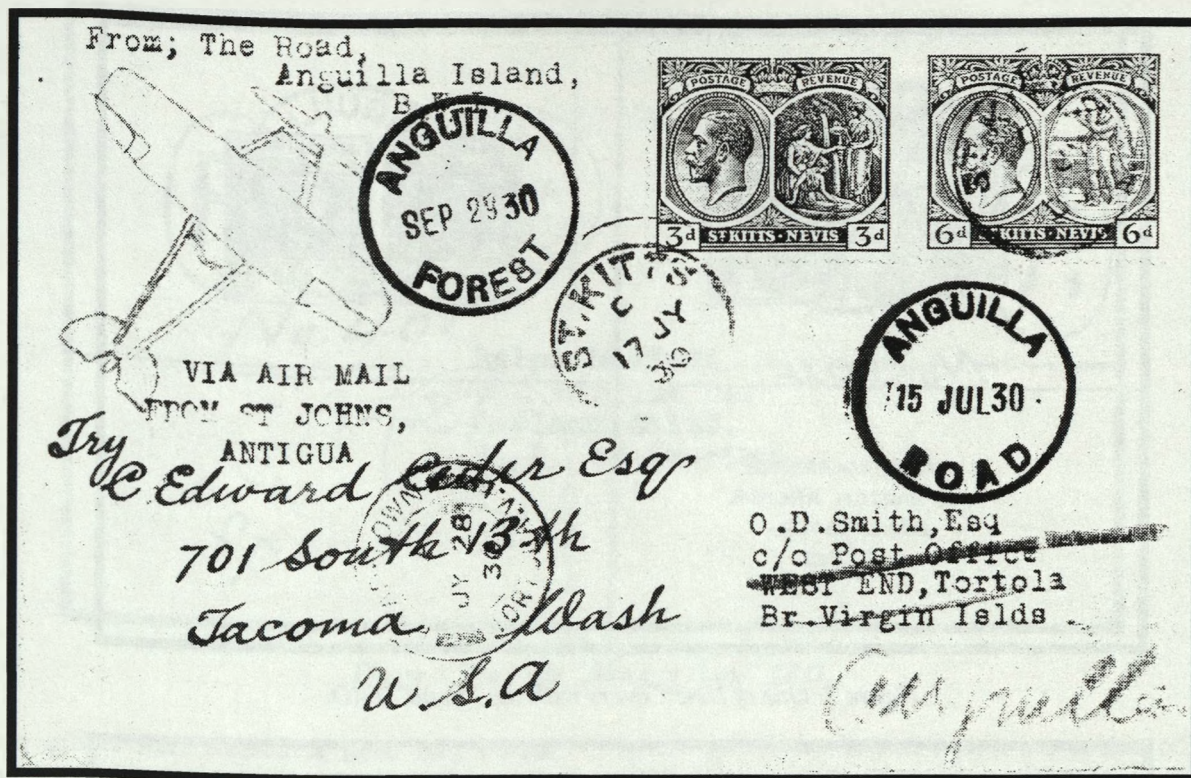 From; The Road,
Anguilla Island,
B
ANGUILLA
SEP 29 30
FOREST
POSTAGE REVENUE
3d ST KITTS-NEVIS 3d
POSTAGE REVENUE
6d ST KITTS-NEVIS 6d
ST. KITTS
C
17 JY
30
ANGUILLA
15 JUL 30
ROAD
VIA AIR MAIL
FROM ST JOHNS,
ANTIGUA
Try
C Edward Esqr
701 South 13th
Tacoma Wash
U.S.A
JY 28
30
O.D.Smith,Esq
c/o Post Office
WEST END,Tortola
Br.Virgin Islds.
Anguilla